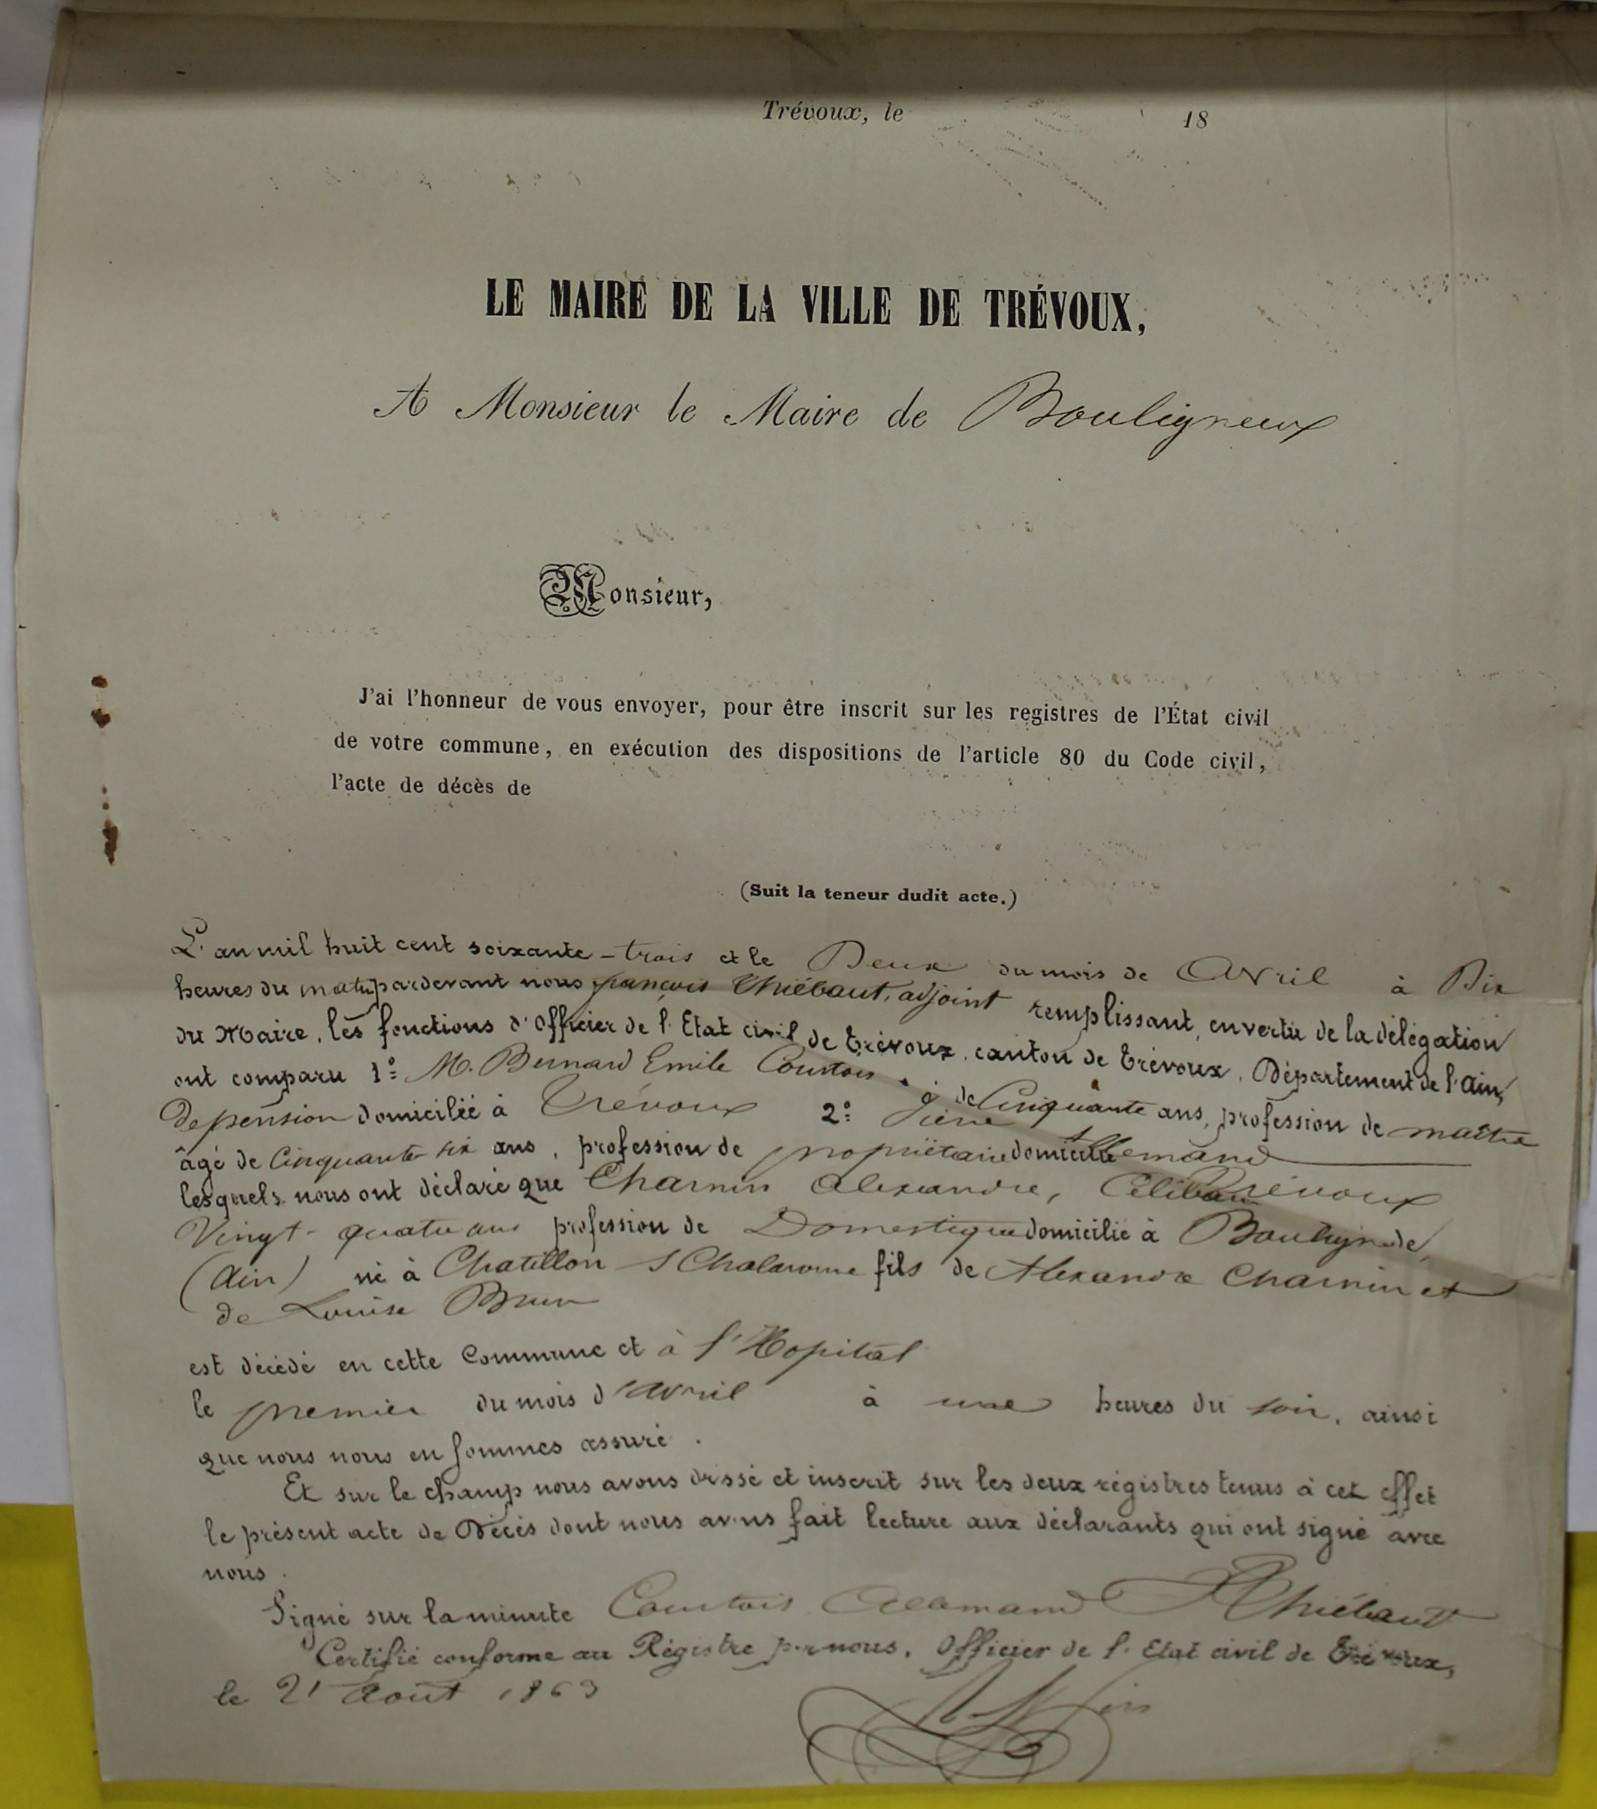 Trévoux, le 18
LE MAIRE DE LA VILLE DE TRÉVOUX,
A Monsieur le Maire de Bouligneux
Monsieur,
J'ai l'honneur de vous envoyer, pour être inscrit sur les registres de l'État civil
de votre commune, en exécution des dispositions de l'article 80 du Code civil,
l'acte de décès de
(Suit la teneur dudit acte.)
L'an mil huit cent soixante-trois et le Deux du mois de Avril à Dix
heures du matin pardevant nous françois Thiébaut, adjoint remplissant, en vertu de la délégation
du Maire, les fonctions d'Officier de l'Etat civil de Trévoux, canton de Trévoux, Département de l'Ain,
ont comparu 1º M. Bernard Emile Courtois, âgé de Cinquante ans, profession de maître
de pension domicilié à Trévoux 2º Pierre Allemand
âgé de Cinquante six ans, profession de propriétaire domicilié Trévoux
lesquels nous ont déclaré que Charnin Alexandre, Célibataire
Vingt-quatre ans profession de Domestique domicilié à
(Ain) né à Chatillon S Chalaronne fils de Alexandre Charnin et
de Louise Brun
est décédé en cette Commune et à l'Hopital
le premier du mois d'avril à une heures du soir, ainsi
que nous nous en sommes assuré.
Et sur le champ nous avons dressé et inscrit sur les deux régistres tenus à cet effet
le présent acte de Décès dont nous avons fait lecture aux déclarants qui ont signé avec
nous.
Signé sur la minute Courtois Allamand Thiébaut
Certifié conforme au Régistre par nous, Officier de l'Etat civil de Trévoux,
le 21 Août 1863